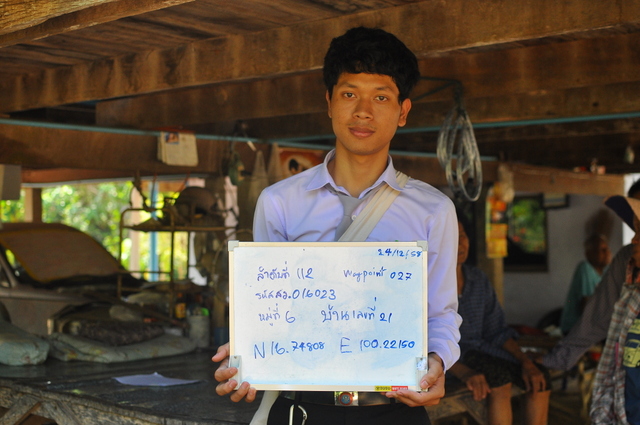 24/12/58
ลำดับที่ 112 Waypoint 027
รหัสสว.016023
หมู่ที่ 6 บ้านเลขที่ 21
N 16.74808 E 100.22150